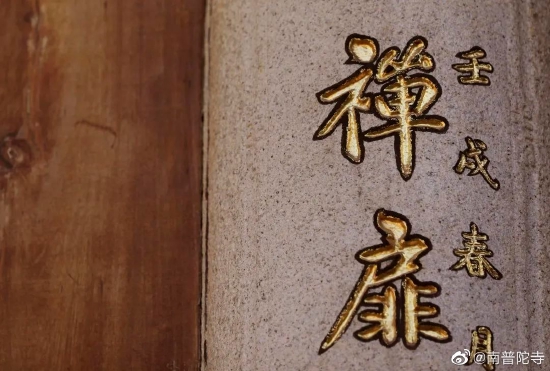 壬戌春月
禪扉
@南普陀寺